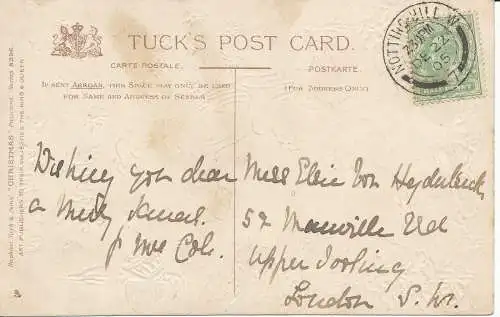 TUCK'S POST CARD.
CARTE POSTALE.
POSTKARTE.
IF SENT ABROAD, THIS SPACE MAY ONLY BE USED
FOR NAME AND ADDRESS OF SENDER.
(FOR ADDRESS ONLY)
NOTTING HILL W.
DE 22
05
RAPHAEL TUCK & SONS' "CHRISTMAS" POSTCARD SERIES
ART PUBLISHERS TO THEIR MAJESTIES THE KING & QUEEN
Wishing you dear
a Merry Xmas.
Mrs Cole.
Miss Elsie Von
52 Manville Rd
Upper Tooting
London S.W.